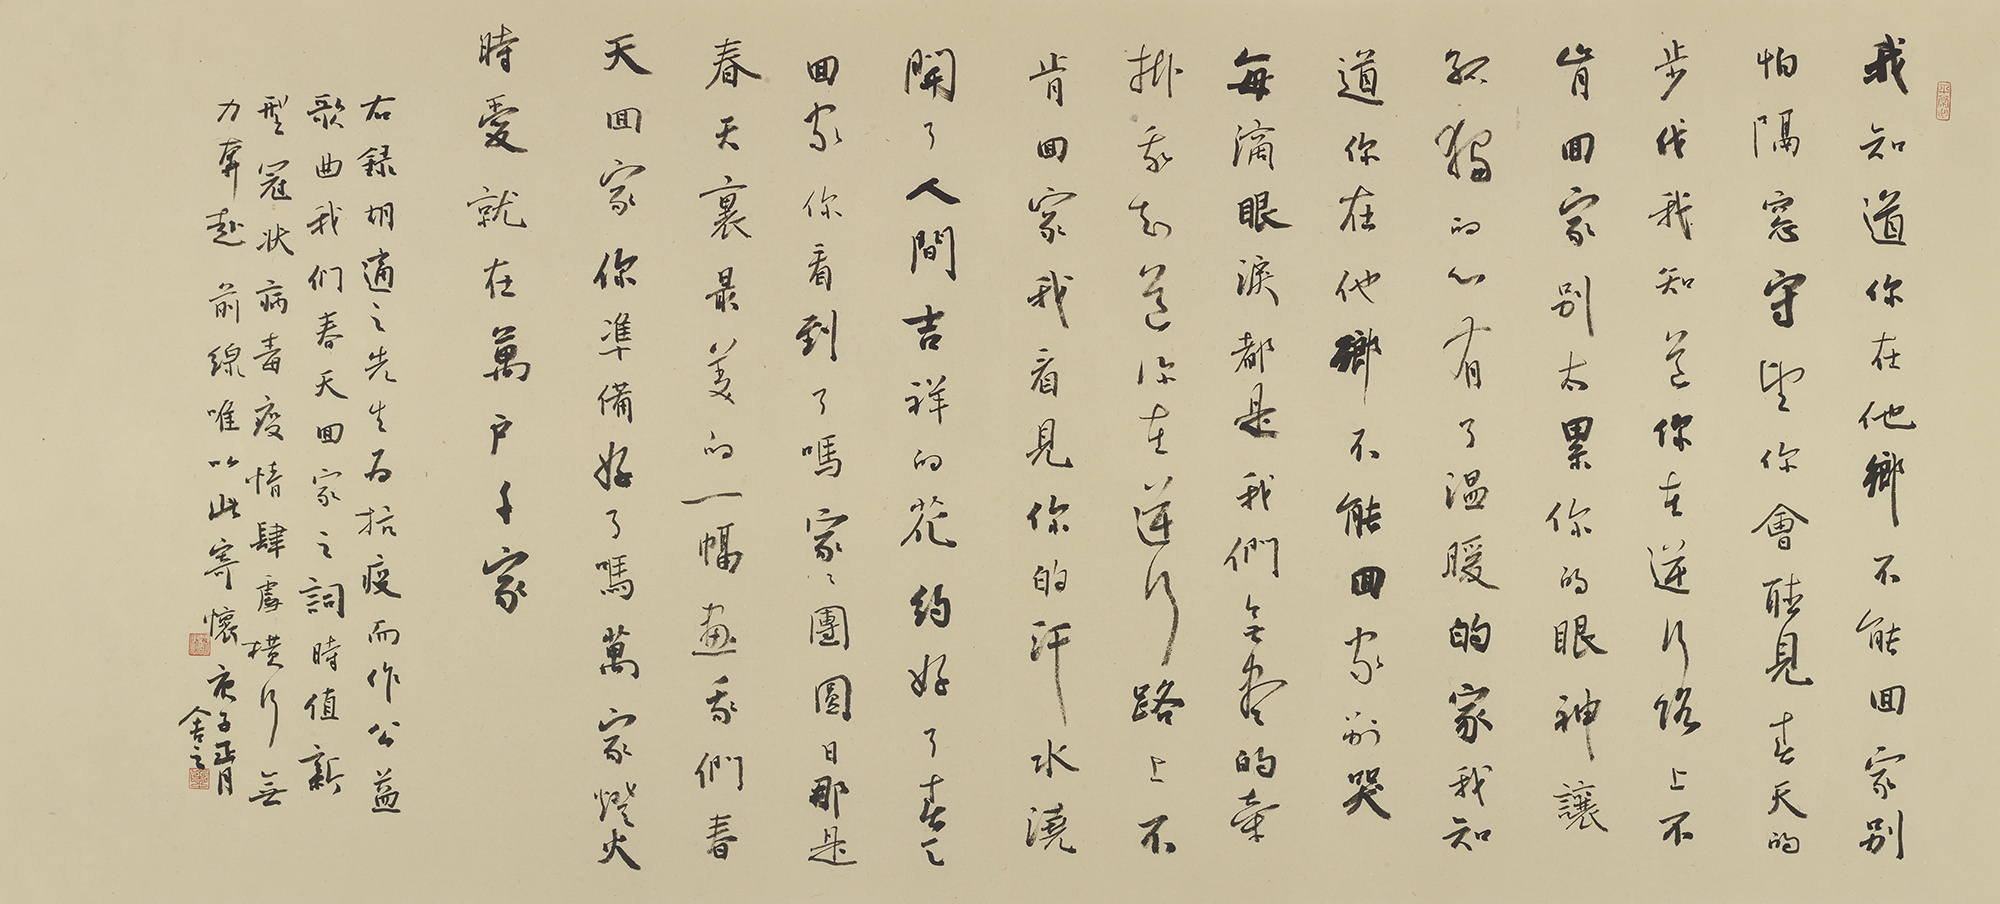 我知道你在他鄉不能回家别
怕隔窓守望你會聽見春天的
步伐我知道你在逆行路上不
肯回家别太累你的眼神讓
孤獨的心有了温暖的家我知
道你在他鄉不能回家别哭
每滴眼淚都是我們無盡的牽
掛我知道你在逆行路上不
肯回家我看見你的汗水澆
開了人間吉祥的花約好了春天
回家你看到了嗎家〻團圓日那是
春天裏最美的一幅畫我們春
天回家你準備好了嗎萬家燈火
時愛就在萬户千家
右録胡適之先生为抗疫而作公益
歌曲我们春天回家之詞時值新
型冠状病毒疫情肆虐横行無
力奔赴前線唯以此寄懷庚子正月
舍之